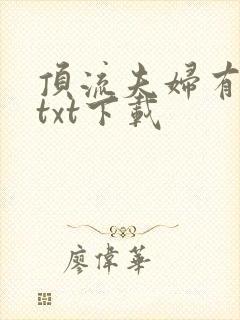 頂流夫婦有
txt下載
廖偉華